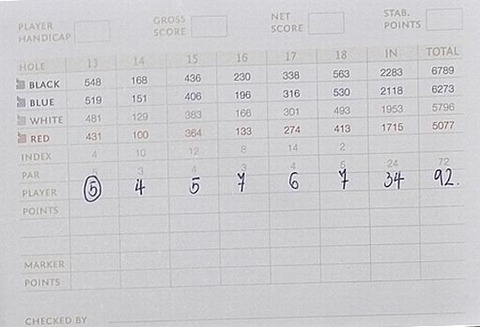 PLAYER HANDICAP GROSS SCORE NET SCORE STAB. POINTS
HOLE 13 14 15 16 17 18 IN TOTAL
BLACK 548 168 436 230 338 563 2283 6789
BLUE 519 151 406 196 316 530 2118 6273
WHITE 481 129 383 166 301 493 1953 5796
RED 431 100 364 133 274 413 1715 5077
INDEX 4 10 12 8 14 2
PAR 3 4 3 4 5 24 72
PLAYER 5 4 5 7 6 7 34 92.
POINTS
MARKER
POINTS
CHECKED BY